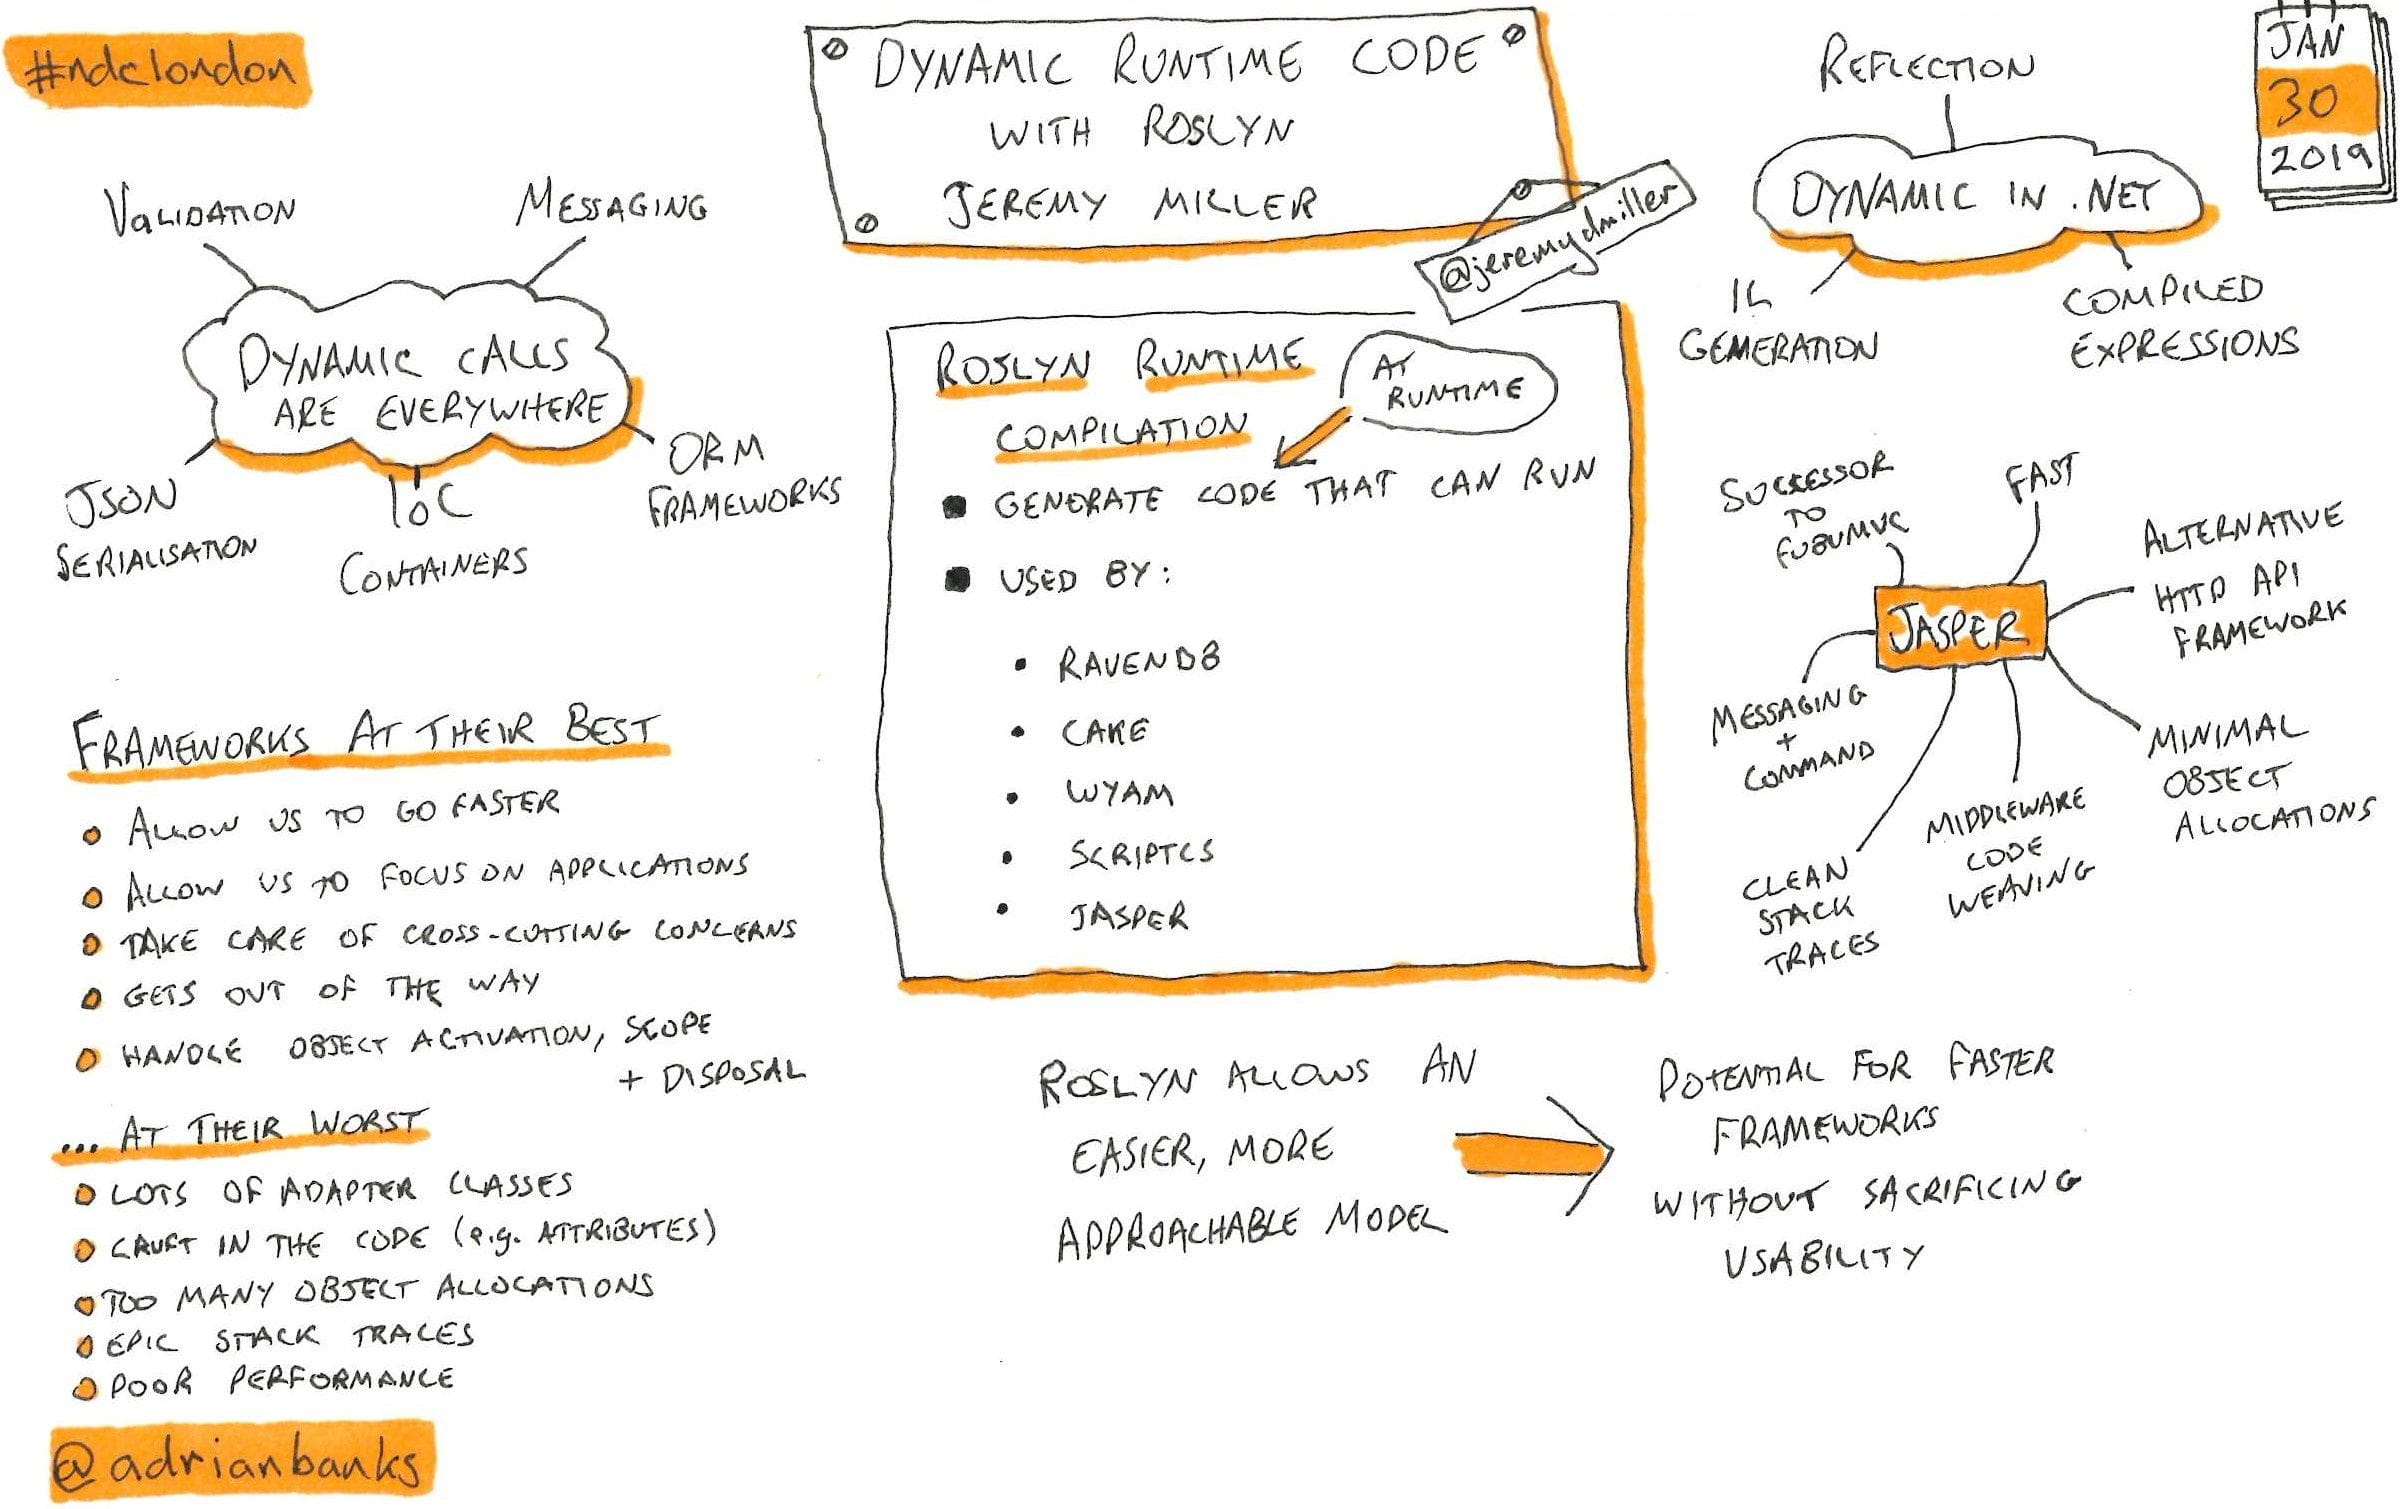 #ndclondon
DYNAMIC RUNTIME CODE
WITH ROSLYN
JEREMY MILLER
@jeremydmiller
JAN
30
2019
VALIDATION
MESSAGING
DYNAMIC CALLS
ARE EVERYWHERE
JSON
SERIALISATION
IoC
CONTAINERS
ORM
FRAMEWORKS
REFLECTION
DYNAMIC IN .NET
IL
GENERATION
COMPILED
EXPRESSIONS
ROSLYN RUNTIME
COMPILATION
AT
RUNTIME
GENERATE CODE THAT CAN RUN
USED BY:
• RAVENDB
• CAKE
• WYAM
• SCRIPTCS
• JASPER
SUCCESSOR
TO
FUBUMVC
FAST
ALTERNATIVE
HTTP API
FRAMEWORK
JASPER
MESSAGING
+
COMMAND
CLEAN
STACK
TRACES
MIDDLEWARE
CODE
WEAVING
MINIMAL
OBJECT
ALLOCATIONS
FRAMEWORKS AT THEIR BEST
ALLOW US TO GO FASTER
ALLOW US TO FOCUS ON APPLICATIONS
TAKE CARE OF CROSS-CUTTING CONCERNS
GETS OUT OF THE WAY
HANDLE OBJECT ACTIVATION, SCOPE
+ DISPOSAL
... AT THEIR WORST
LOTS OF ADAPTER CLASSES
CRUFT IN THE CODE (e.g. ATTRIBUTES)
TOO MANY OBJECT ALLOCATIONS
EPIC STACK TRACES
POOR PERFORMANCE
ROSLYN ALLOWS AN
EASIER, MORE
APPROACHABLE MODEL
POTENTIAL FOR FASTER
FRAMEWORKS
WITHOUT SACRIFICING
USABILITY
@adrianbanks